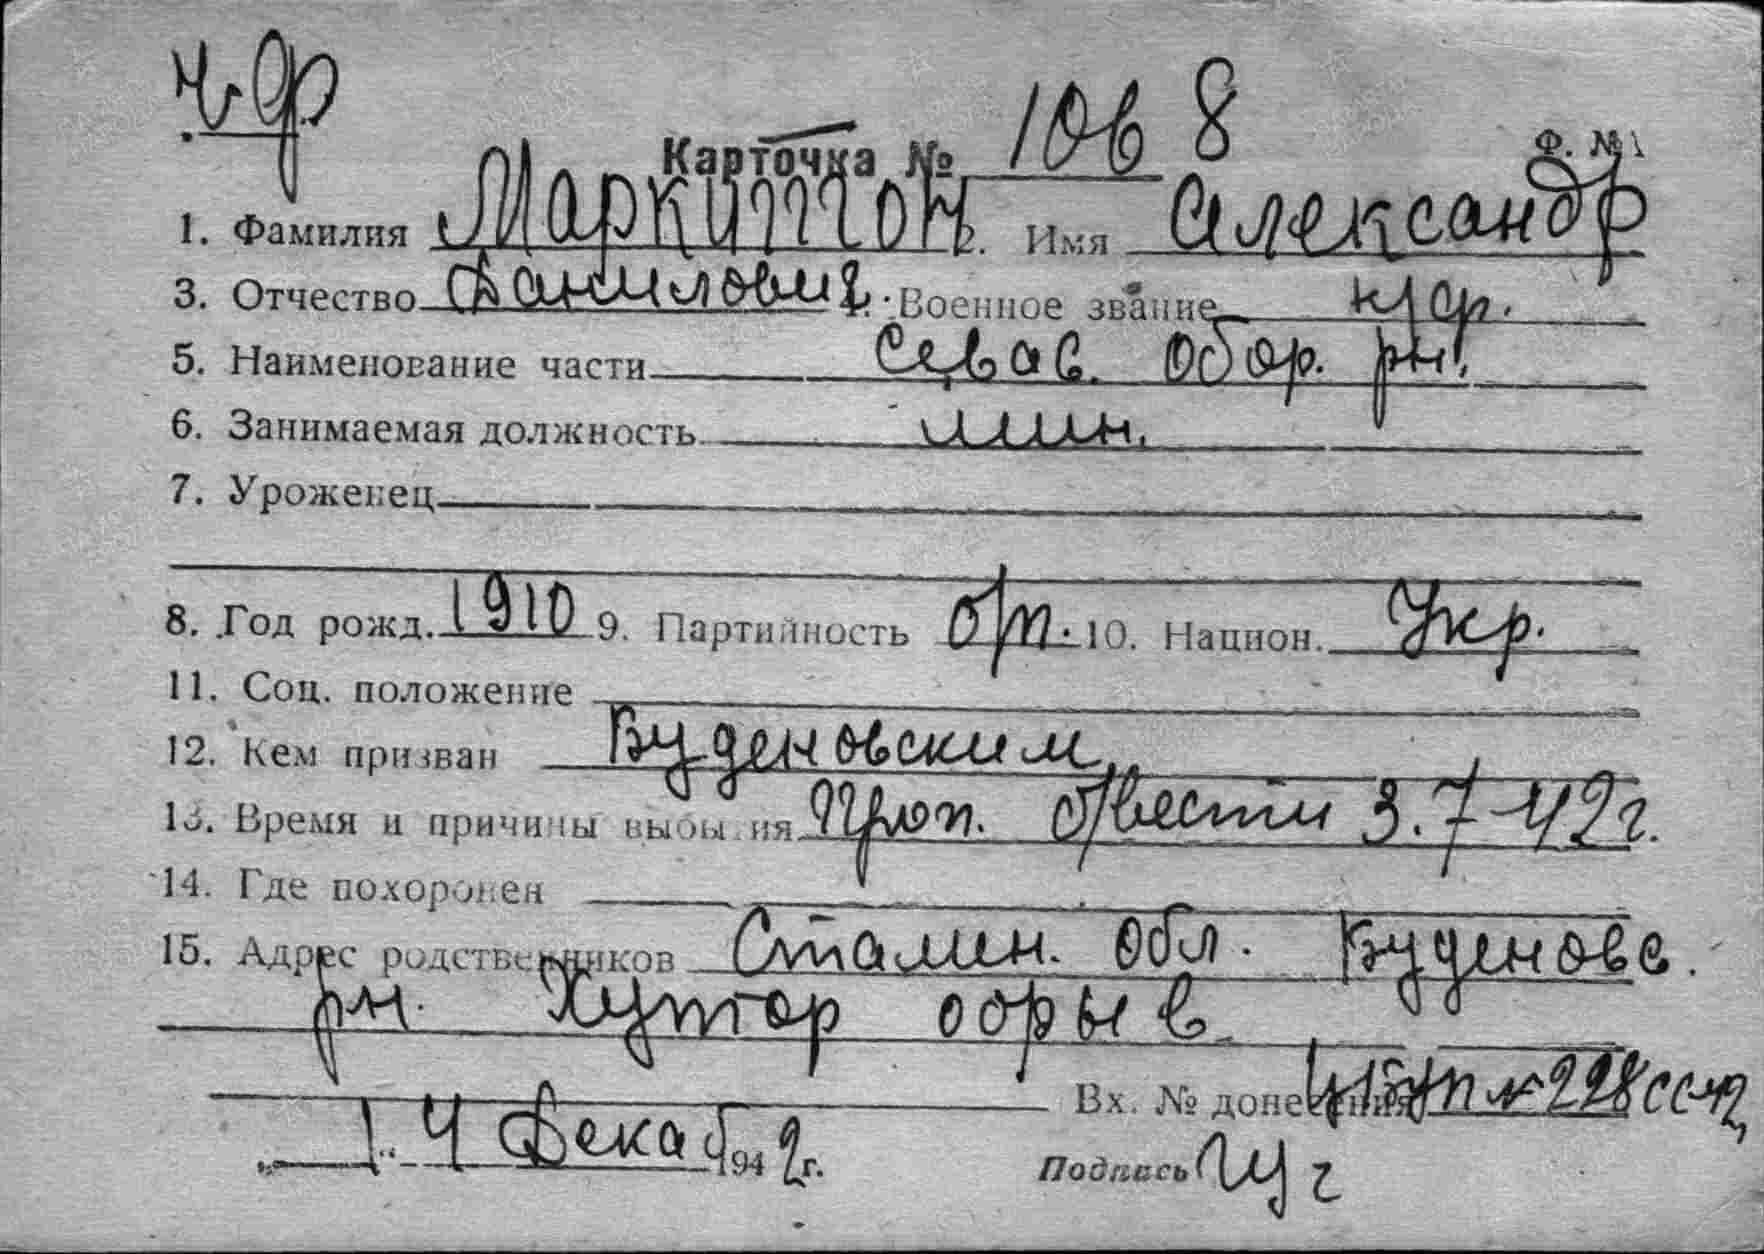 ч.ф
Карточка № 1068
Ф. №1
1. Фамилия Маркитон 2. Имя Александр
3. Отчество Данилович 4. Военное звание к/ф.
5. Наименование части Севас. обор. рн.
6. Занимаемая должность мин.
7. Уроженец
8. Год рожд. 1910 9. Партийность б/п. 10. Национ. Укр.
11. Соц. положение
12. Кем призван Буденовским
13. Время и причины выбытия Проп. б/вести 3.7-42г.
14. Где похоронен
15. Адрес родственников Сталин. обл. Буденовс.
рн. Хутор обрыв
Вх. № донесения № 228сс42
14 Декаб 1942г.
Подпись